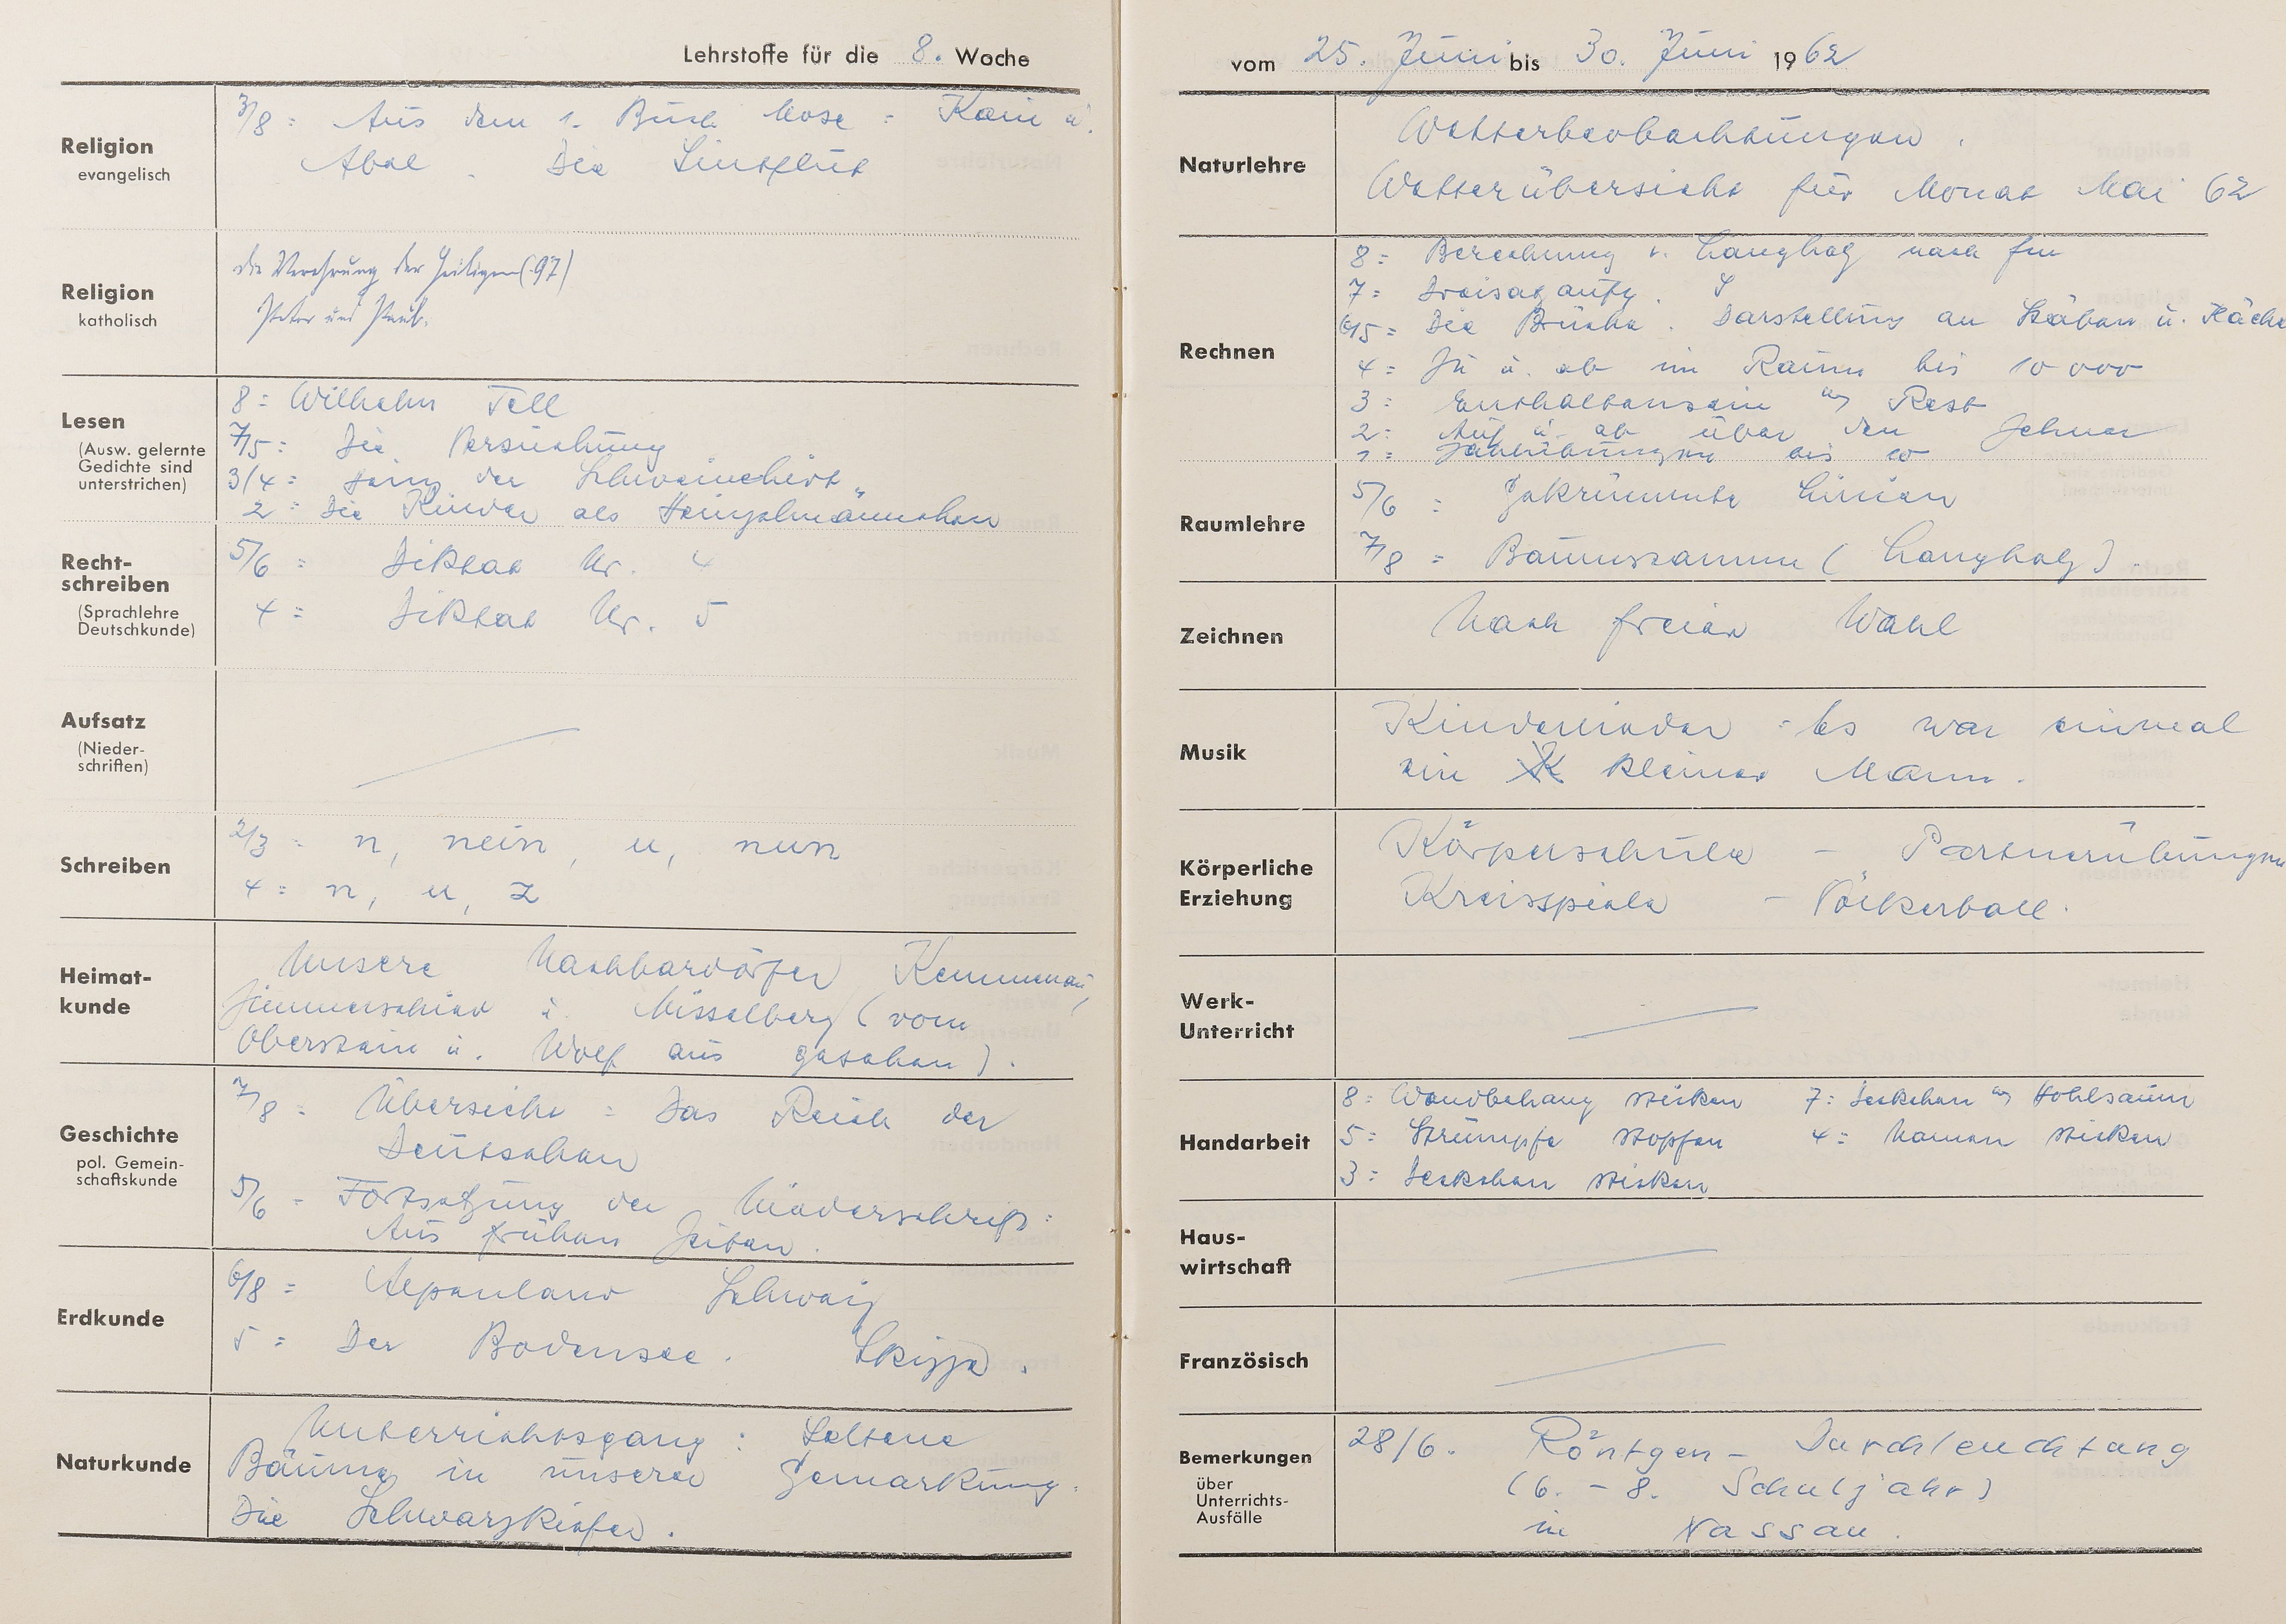 Lehrstoffe für die 8. Woche
Religion
evangelisch
3/8 = Aus dem 1. Buch Mose = Kain u.
Abel. Die Sintflut
Religion
katholisch
die Verehrung der Heiligen (97)
Peter und Paul.
Lesen
(Ausw. gelernte
Gedichte sind
unterstrichen)
8 = Wilhelm Tell
7/5 = Die Versuchung
3/4 = der Schweinehirt
2 = Die Kinder als Heinzelmännchen
Recht-
schreiben
(Sprachlehre
Deutschkunde)
5/6 = Diktat Nr. 4
4 = Diktat Nr. 5
Aufsatz
(Nieder-
schriften)
Schreiben
2/3 = n, nein, u, nun
4 = n, u, z
Heimat-
kunde
Unsere Nachbardörfer Kemmenau,
Zimmerschied u. Misselberg (vom
Oberstein u. Wolf aus gesehen).
Geschichte
pol. Gemein-
schaftskunde
7/8 = Übersicht = Das Reich der
Deutschen
5/6 = Fortsetzung der Niederschrift:
Aus frühen Zeiten.
Erdkunde
6/8 = Alpenland Schweiz
5 = Der Bodensee. Skizze.
Naturkunde
Unterrichtsgang: Seltene
Bäume in unserer Gemarkung.
Die Schwarzkiefer.
vom 25. Juni bis 30. Juni 1962
Naturlehre
Wetterbeobachtungen.
Wetterübersicht für Monat Mai 62
Rechnen
8 = Berechnung v. Langholz nach fm
7 = Dreisatzaufg.
6/5 = Die Brüche. Darstellung an Stäben u.
4 = Zu u. ab im Raum bis 10 000
3 = Enthaltensein m. Rest
2 = Auf u. ab über den Zehner
1 = Zählübungen bis 10
Raumlehre
5/6 = Gekrümmte Linien
7/8 = Baumstamm (Langholz).
Zeichnen
Nach freier Wahl
Musik
Kinderlieder = Es war einmal
ein kleiner Mann.
Körperliche
Erziehung
Körperschule - Partnerübungen
Kreisspiele - Völkerball.
Werk-
Unterricht
Handarbeit
8 = Wandbehang sticken 7 = Deckchen m. Hohlsaum
5 = Strümpfe stopfen 4 = Namen sticken
3 = Deckchen sticken
Haus-
wirtschaft
Französisch
Bemerkungen
über
Unterrichts-
Ausfälle
28/6. Röntgen - Durchleuchtung
(6. - 8. Schuljahr)
in Nassau.